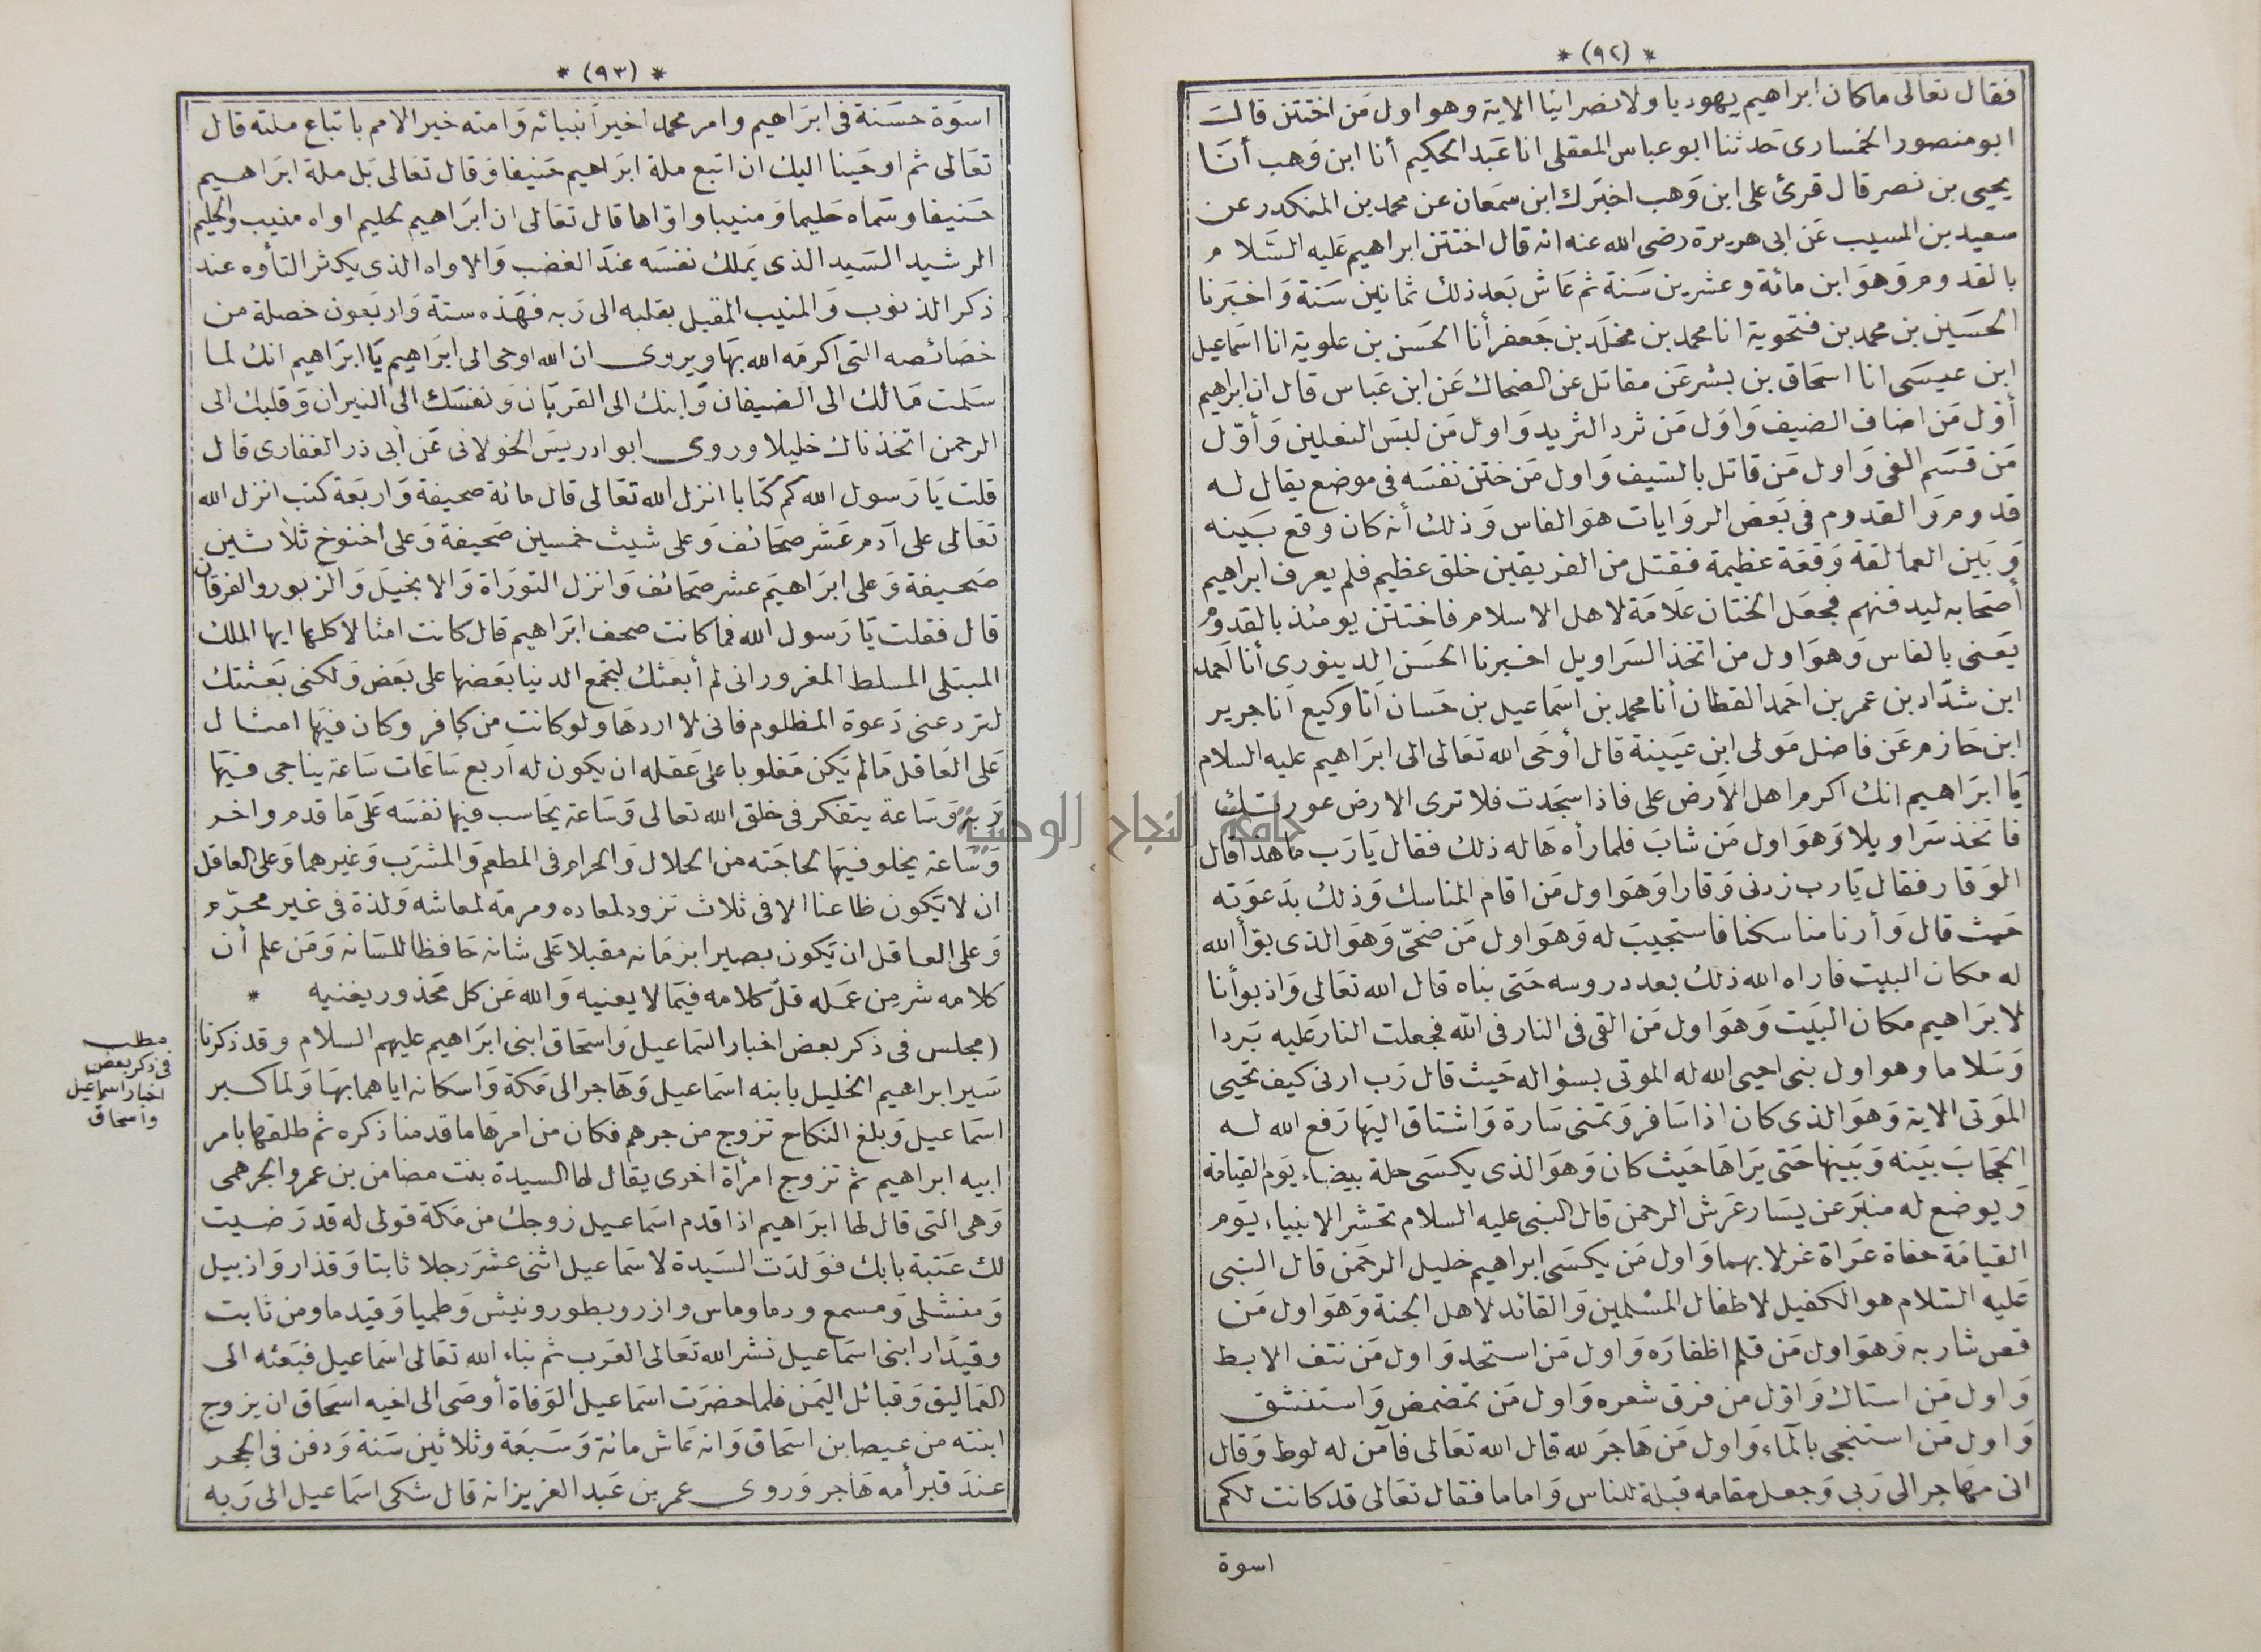 * (٩٢) *
فقال تعالى ما كان ابراهيم يهوديا ولا نصرانيا الاية وهو اول من اختتن قالت
ابو منصور الخمسارى حدثنا ابو عباس المعقلى انا عبد الحكيم أنا ابن وهب أنا
يحيى بن نصر قال قرئ على ابن وهب اخبرك ابن سمعان عن محمد بن المنكدر عن
سعيد بن المسيب عن ابى هريرة رضى الله عنه انه قال اختتن ابراهيم عليه السلام
بالقدوم وهو ابن مائة وعشرين سنة ثم عاش بعد ذلك ثمانين سنة واخبرنا
الحسين بن محمد بن فتحوية انا محمد بن مخلد بن جعفر أنا الحسن بن علوية انا اسماعيل
ابن عيسى انا اسحاق بن بشر عن مقاتل عن الضحاك عن ابن عباس قال ان ابراهيم
أول من اضاف الضيف واول من ثرد الثريد واول من لبس النعلين وأول
من قسم الفى واول من قاتل بالسيف واول من ختن نفسه فى موضع يقال له
قدوم والقدوم فى بعض الروايات هو الفاس وذلك أنه كان وقع بينه
وبين العمالقة وقعة عظيمة فقتل من الفريقين خلق عظيم فلم يعرف ابراهيم
أصحابه ليدفنهم فجعل الختان علامة لاهل الاسلام فاختتن يومئذ بالقدوم
يعنى بالفاس وهو اول من اتخذ السراويل اخبرنا الحسن الدينورى أنا احمد
ابن شداد بن عمر بن احمد القطان أنا محمد بن اسماعيل بن حسان انا وكيع انا جرير
ابن حازم عن فاضل مولى ابن عيينة قال أوحى الله تعالى الى ابراهيم عليه السلام
يا ابراهيم انك اكرم اهل الارض على فاذا سجدت فلا ترى الارض عورتك
فاتخذ سراويلا وهو اول من شاب فلما رأه هاله ذلك فقال يا رب ما هذا قال
الوقار فقال يا رب زدنى وقارا وهو اول من اقام المناسك وذلك بدعوته
حيث قال وأرنا مناسكنا فاستجيب له وهو اول من ضحى وهو الذى بوأ الله
له مكان البيت فاراه الله ذلك بعد دروسه حتى بناه قال الله تعالى واذ بوأنا
لابراهيم مكان البيت وهو اول من القى فى النار فى الله فجعلت النار عليه بردا
وسلاما وهو اول بنى احيى الله له الموتى بسؤاله حيث قال رب ارنى كيف تحيى
الموتى الاية وهو الذى كان اذا سافر وتمنى سارة واشتاق اليها رفع الله له
الحجاب بينه وبينها حتى يراها حيث كان وهو الذى يكسى حلة بيضاء يوم القيامة
ويوضع له منبر عن يسار عرش الرحمن قال النبى عليه السلام تحشر الانبياء يوم
القيامة حفاة عراة غرلا بهما واول من يكسى ابراهيم خليل الرحمن قال النبى
عليه السلام هو الكفيل لاطفال المسلمين والقائد لاهل الجنة وهو اول من
قص شاربه وهو اول من قلم اظفاره واول من استحد واول من نتف الابط
واول من استاك واول من فرق شعره واول من تمضمض واستنشق
واول من استنجى بالماء واول من هاجر لله قال الله تعالى فآمن له لوط وقال
انى مهاجر الى ربى وجعل مقامه قبلة للناس واماما فقال تعالى قد كانت لكم
اسوة
* (٩٣) *
اسوة حسنة فى ابراهيم وامر محمدا خير انبيائه وامته خير الامم باتباع ملته قال
تعالى ثم اوحينا اليك ان اتبع ملة ابراهيم حنيفا وقال تعالى بل ملة ابراهيم
حنيفا وسماه حليما ومنيبا واواها قال تعالى ان ابراهيم لحليم اواه منيب والحليم
الرشيد السيد الذى يملك نفسه عند الغضب والاواه الذى يكثر التأوه عند
ذكر الذنوب والمنيب المقبل بقلبه الى ربه فهذه ستة واربعون خصلة من
خصائصه التى اكرمه الله بها ويروى ان الله اوحى الى ابراهيم يا ابراهيم انك لما
سلمت مالك الى الضيفان وابنك الى القربان ونفسك الى النيران وقلبك الى
الرحمن اتخذناك خليلا وروى ابو ادريس الخولانى عن أبى ذر الغفارى قال
قلت يا رسول الله كم كتابا انزل الله تعالى قال مائة صحيفة واربعة كتب انزل الله
تعالى على آدم عشر صحائف وعلى شيث خمسين صحيفة وعلى اخنوخ ثلاثين
صحيفة وعلى ابراهيم عشر صحائف وانزل التوراة والانجيل والزبور والفرقان
قال فقلت يا رسول الله فما كانت صحف ابراهيم قال كانت امثالا كلها ايها الملك
المبتلى المسلط المغرور انى لم أبعثك لتجمع الدنيا بعضها على بعض ولكنى بعثتك
لترد عنى دعوة المظلوم فانى لا اردها ولو كانت من كافر وكان فيها امثال
على العاقل مالم يكن مغلوبا على عقله ان يكون له اربع ساعات ساعة يناجى فيها
ربه وساعة يتفكر فى خلق الله تعالى وساعة يحاسب فيها نفسه على ما قدم واخر
وساعة يخلو فيها لحاجته من الحلال والحرام فى المطعم والمشرب وغيرهما وعلى العاقل
ان لا يكون ظاعنا الا فى ثلاث تزود لمعاده ومرمة لمعاشه ولذة فى غير محرم
وعلى العاقل ان يكون بصيرا بزمانه مقبلا على شانه حافظا للسانه ومن علم أن
كلامه شر من عمله قل كلامه فيما لا يعنيه والله عن كل محذور يغنيه *
(مجلس فى ذكر بعض اخبار اسماعيل واسحاق ابنى ابراهيم عليهم السلام وقد ذكرنا
سير ابراهيم الخليل بابنه اسماعيل وهاجر الى مكة واسكانه اياهما بها ولما كبر
اسماعيل وبلغ النكاح تزوج من جرهم فكان من امرها ما قدمنا ذكره ثم طلقها بامر
ابيه ابراهيم ثم تزوج امرأة اخرى يقال لها السيدة بنت مضامن بن عمرو الجرهمى
وهى التى قال لها ابراهيم اذا قدم اسماعيل زوجك من مكة قولى له قد رضيت
لك عتبة بابك فولدت السيدة لاسماعيل اثنى عشر رجلا ثابتا وقذار واذبيل
ومنشلى ومسمع ورما وماس وازر وبطور ونيش وطميا وقيدما ومن ثابت
وقيدار ابنى اسماعيل نشر الله تعالى العرب ثم نباء الله تعالى اسماعيل فبعثه الى
العماليق وقبائل اليمن فلما حضرت اسماعيل الوفاة أوصى الى اخيه اسحاق ان يزوج
ابنته من عيصا بن اسحاق وانه عاش مائة وسبعة وثلاثين سنة ودفن فى الحجر
عند قبر أمه هاجر وروى عمر بن عبد العزيز انه قال شكى اسماعيل الى ربه
مطلب
فى ذكر بعض
اخبار اسماعيل
واسحاق
جامعة النجاح الوطنية